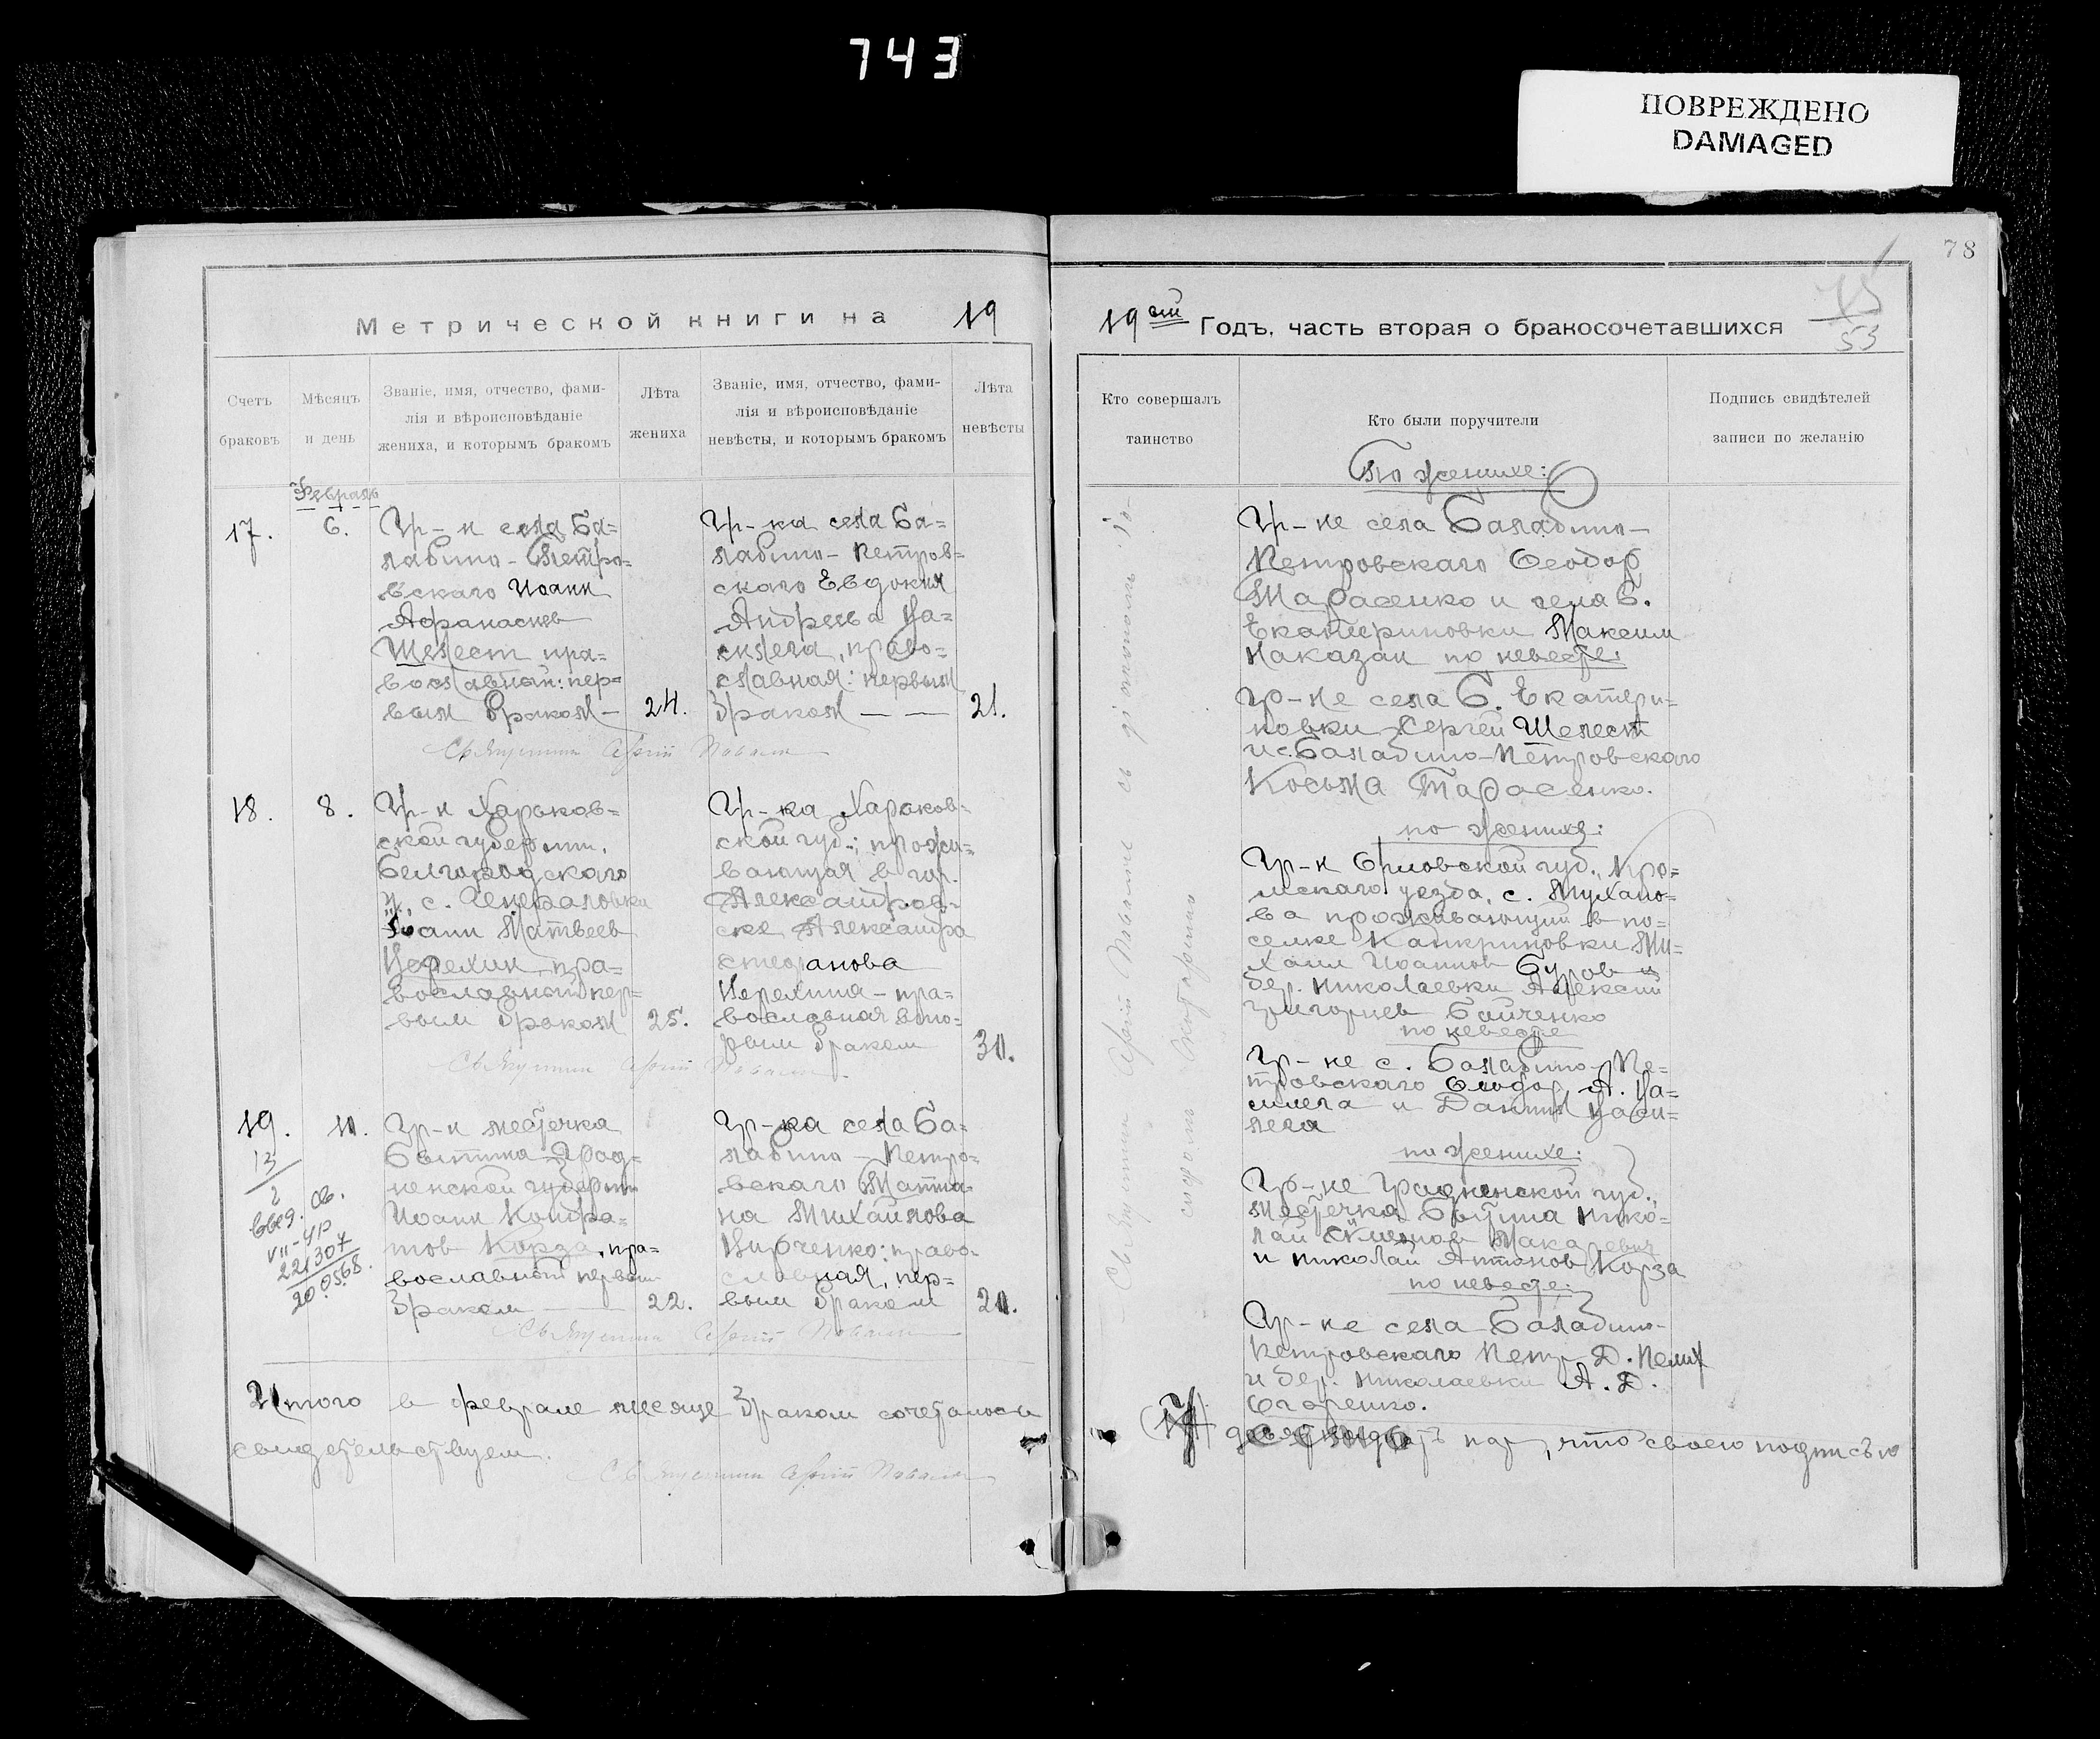 743
ПОВРЕЖДЕНО
DAMAGED
78
53
Метрической книги на 19
19ый Годъ, часть вторая о бракосочетавшихся
Счетъ
браковъ
Мѣсяцъ
и день
Званіе, имя, отчество, фами-
лія и вѣроисповѣданіе
жениха, и которымъ бракомъ
Лѣта
жениха
Званіе, имя, отчество, фами-
лія и вѣроисповѣданіе
невѣсты, и которымъ бракомъ
Лѣта
невѣсты
Кто совершалъ
таинство
Кто были поручители
Подпись свидѣтелей
записи по желанію
Февраль
17.
6.
Гр-н села Ба=
лабино-Петро=
вскаго Иоанн
Афанасиев
Шелест пра=
вославный: пер=
вым браком —
24.
Гр-ка села Ба=
лабино-Петров=
скаго Евдокия
Андреева Ца=
силега, право=
славная: первым
браком — —
21.
Священник Павали
По женихе:
Гр-не села Балабино-
Петровскаго Феодор
Тарасенко и села Б.
Екатериновки Максим
Наказан по невесте:
Гр-не села Б. Екатери-
новки Сергей Шелест
и с. Балабино-Петровскаго
Косьма Тарасенко.
18.
8.
Гр-н Харьков=
ской губернии,
Белгородскаго
у. с. Генераловки
Иоанн Матвеев
Церехин, пра=
вославный пер=
вым браком
25.
Гр-ка Харьков-
ской губ.; прожи=
вающая в гор.
Александров-
ске Александра
Стефанова
Перехина - пра=
вославная вто=
рым браком
30.
Священник
по женихе:
Гр-н Орловской губ., Кро=
мскаго уезда, с. Мухано=
ва проживающий в по=
селке Канкриновки Ми=
хаил Иоаннов Буров и
дер. Николаевки Алексий
Григориев Байченко
по невесте
Гр-не с. Балабино-Пе=
тровскаго Феодор А. Ца=
силега и Даниил Цаси=
лега
19.
10.
13
2
Свед. св.
VII-ЧР
221307
20.05.68.
Гр-н местечка
Бытина Грод=
ненской губернии
Иоанн Кондра=
тов Корза, пра=
вославный первым
браком — —
22.
Гр-ка села Ба=
лабино - Петро=
вскаго Матро-
на Михайлова
Кирченко: право-
славная, пер=
вым браком
20.
Священник
по женихе:
Гр-не Гродненской губ.,
местечка Бытина Нико=
лай Симеонов Макаревич
и Николай Антонов Корза
по невесте:
Гр-не села Балабино-
Петровскаго Петр Д. Пелих
и дер. Николаевки А. Д.
Огоренко.
Итого в феврале месяце браком сочеталось
пар, что своею подписью
свидетельствуем.
Священник